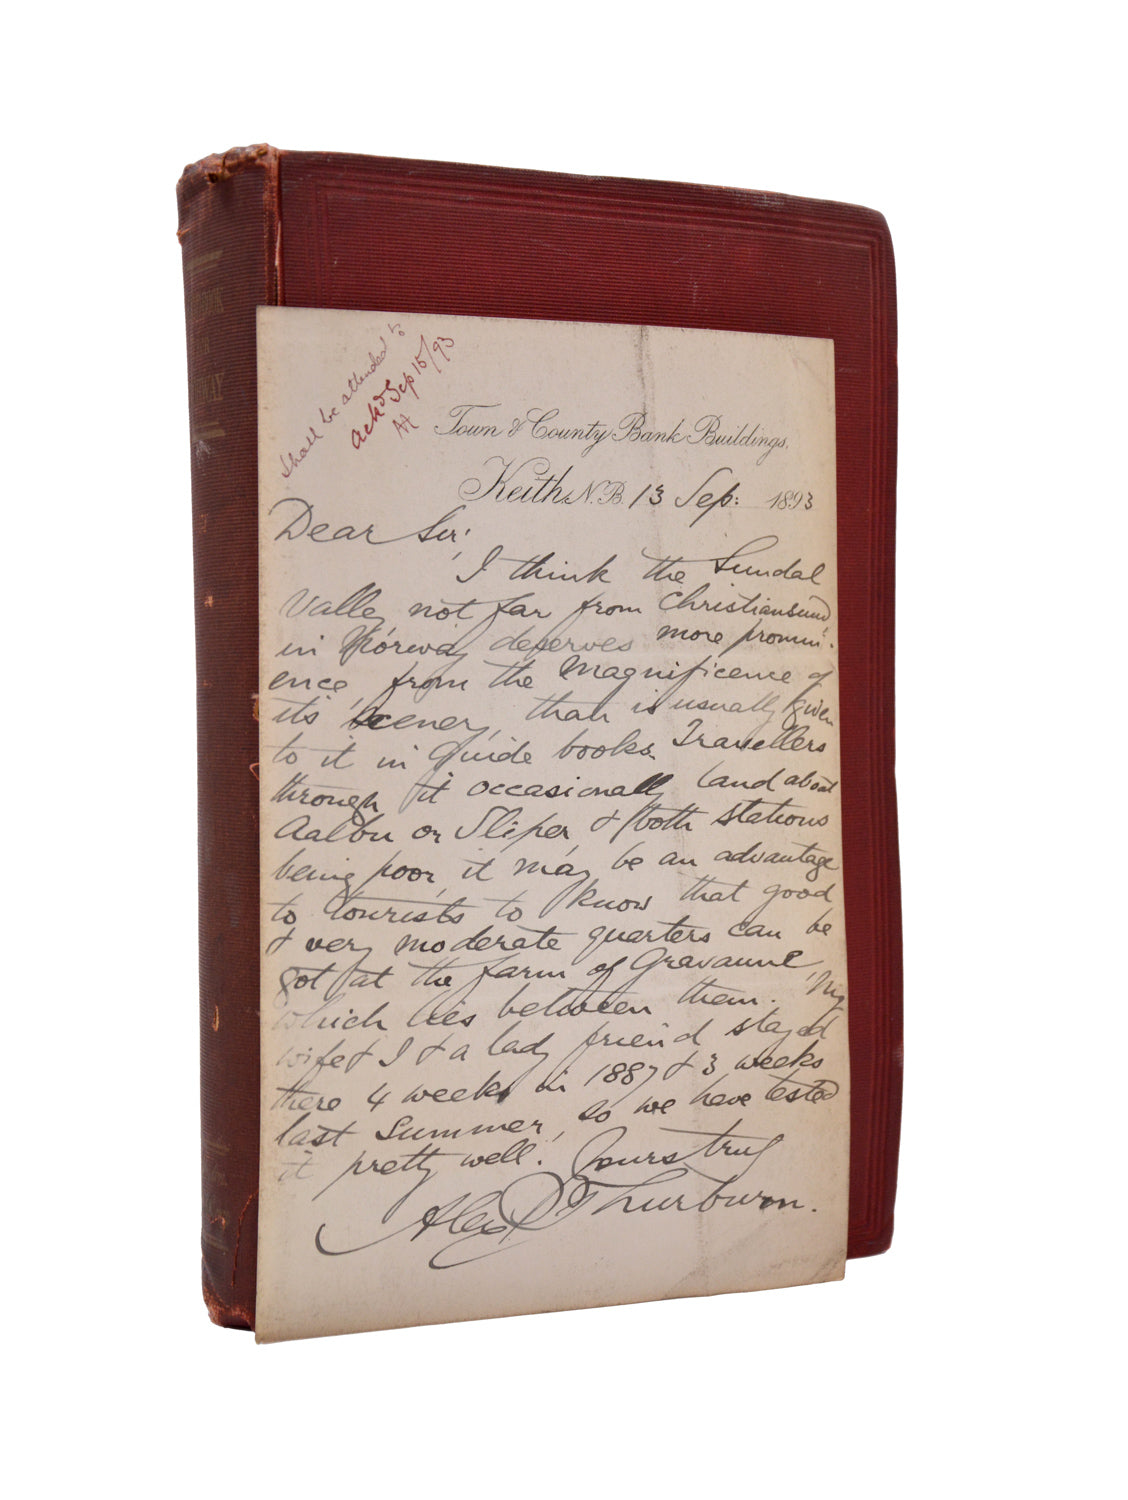 Shall be attended to
Ackd Sep 15/93
AH
Town & County Bank Buildings,
Keith N.B. 13 Sep: 1893
Dear Sir,
I think the Sundal
Valley not far from Christiansund,
in Norway deserves more promin-
ence, from the magnificence of
its scenery, than is usually given
to it in Guide books. Travellers
through it occasionally land about
Aalbu or Sliper, & both stations
being poor, it may be an advantage
to tourists to know that good
& very moderate quarters can be
got at the farm of Gravaune,
which lies between them. My
wife & I & a lady friend stayed
there 4 weeks in 1887 & 3 weeks
last summer, so we have tested
it pretty well. Yours truly
Alex Thurburn.